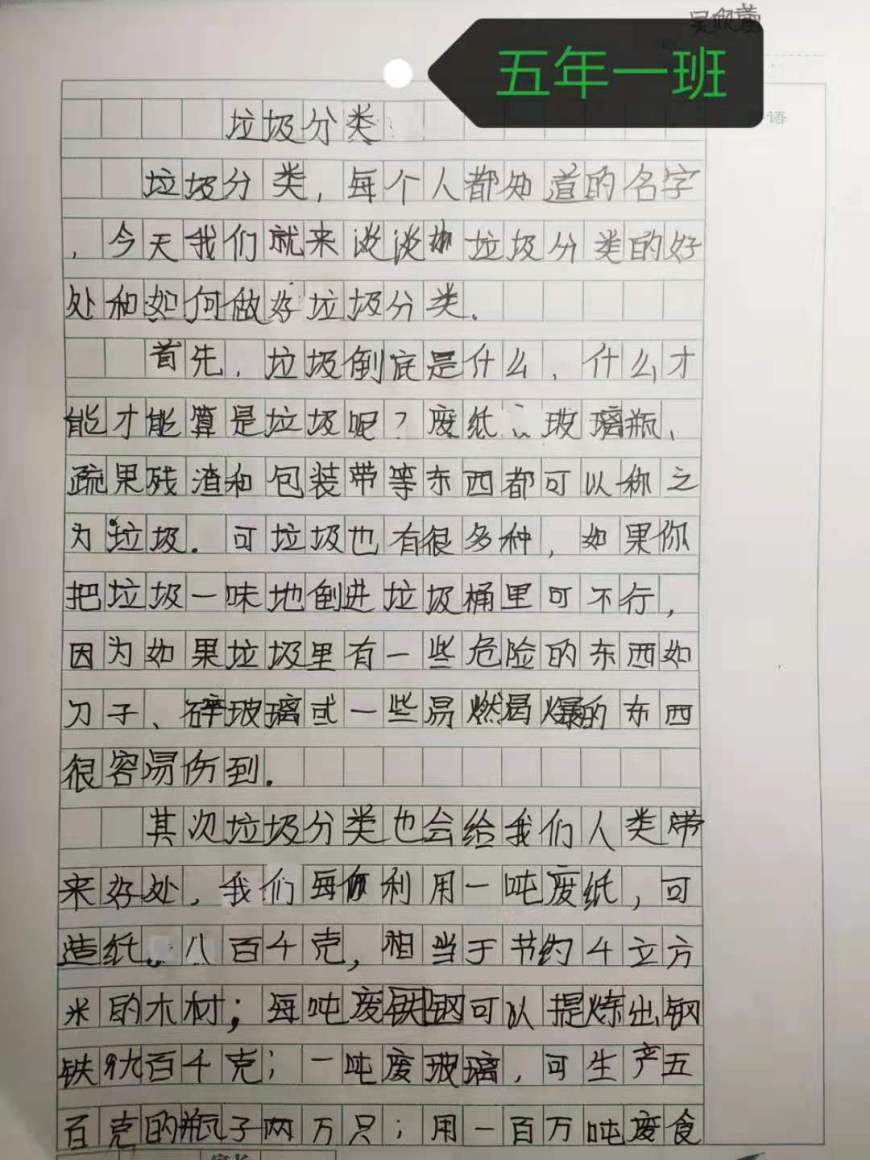 吴欣萱
五年一班
语
垃圾分类
垃圾分类，每个人都知道的名字
，今天我们就来谈谈垃圾分类的好
处和如何做好垃圾分类。
首先，垃圾倒底是什么，什么才
能才能算是垃圾呢？废纸、玻璃瓶、
疏果残渣和包装带等东西都可以称之
为垃圾。可垃圾也有很多种，如果你
把垃圾一味地倒进垃圾桶里可不行，
因为如果垃圾里有一些危险的东西如
刀子、碎玻璃或一些易燃易爆的东西
很容易伤到。
其次垃圾分类也会给我们人类带
来好处，我们每利用一吨废纸，可
造纸八百千克，相当于节约4立方
米的木材；每吨废铁钢可以提炼出钢
铁九百千克；一吨废玻璃，可生产五
百克的瓶子两万只；用一百万吨废食